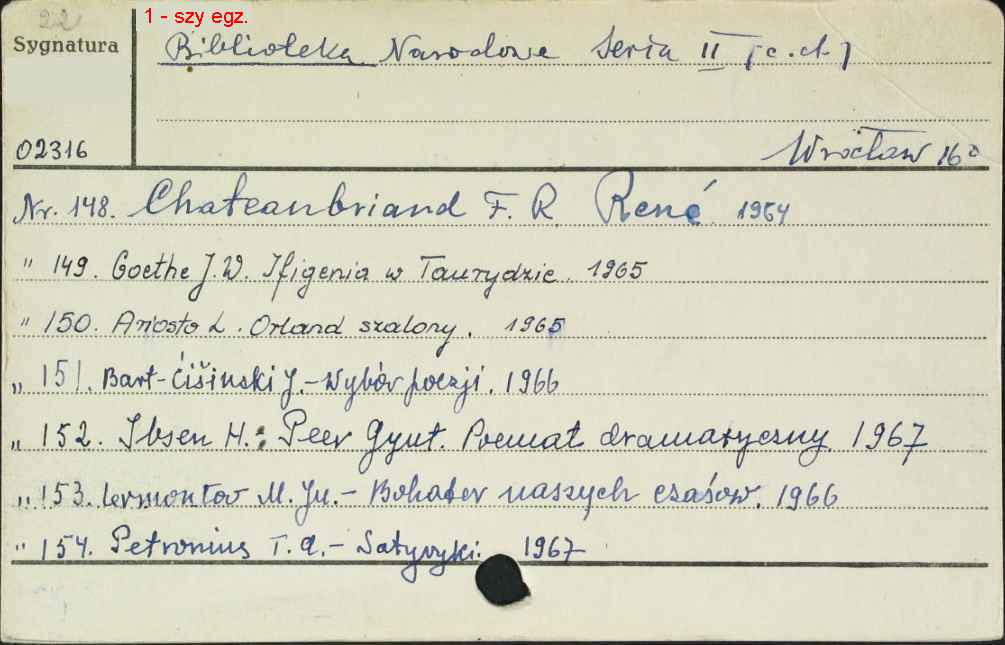 22
1 - szy egz.
Sygnatura
Biblioteka Narodowa Seria II [c.d.]
02316
Wrocław 16°
Nr. 148. Chateaubriand F. R. René. 1964
" 149. Goethe J. W. Ifigenia w Taurydzie. 1965
" 150. Ariosto L. Orland szalony. 1965
" 151. Bart-Ćišinski J. - Wybór poezji. 1966
" 152. Ibsen H.: Peer Gynt. Poemat dramatyczny 1967
" 153. Lermontov M. Ju. - Bohater naszych czasów. 1966
" 154. Petronius T. A. - Satyryki. 1967